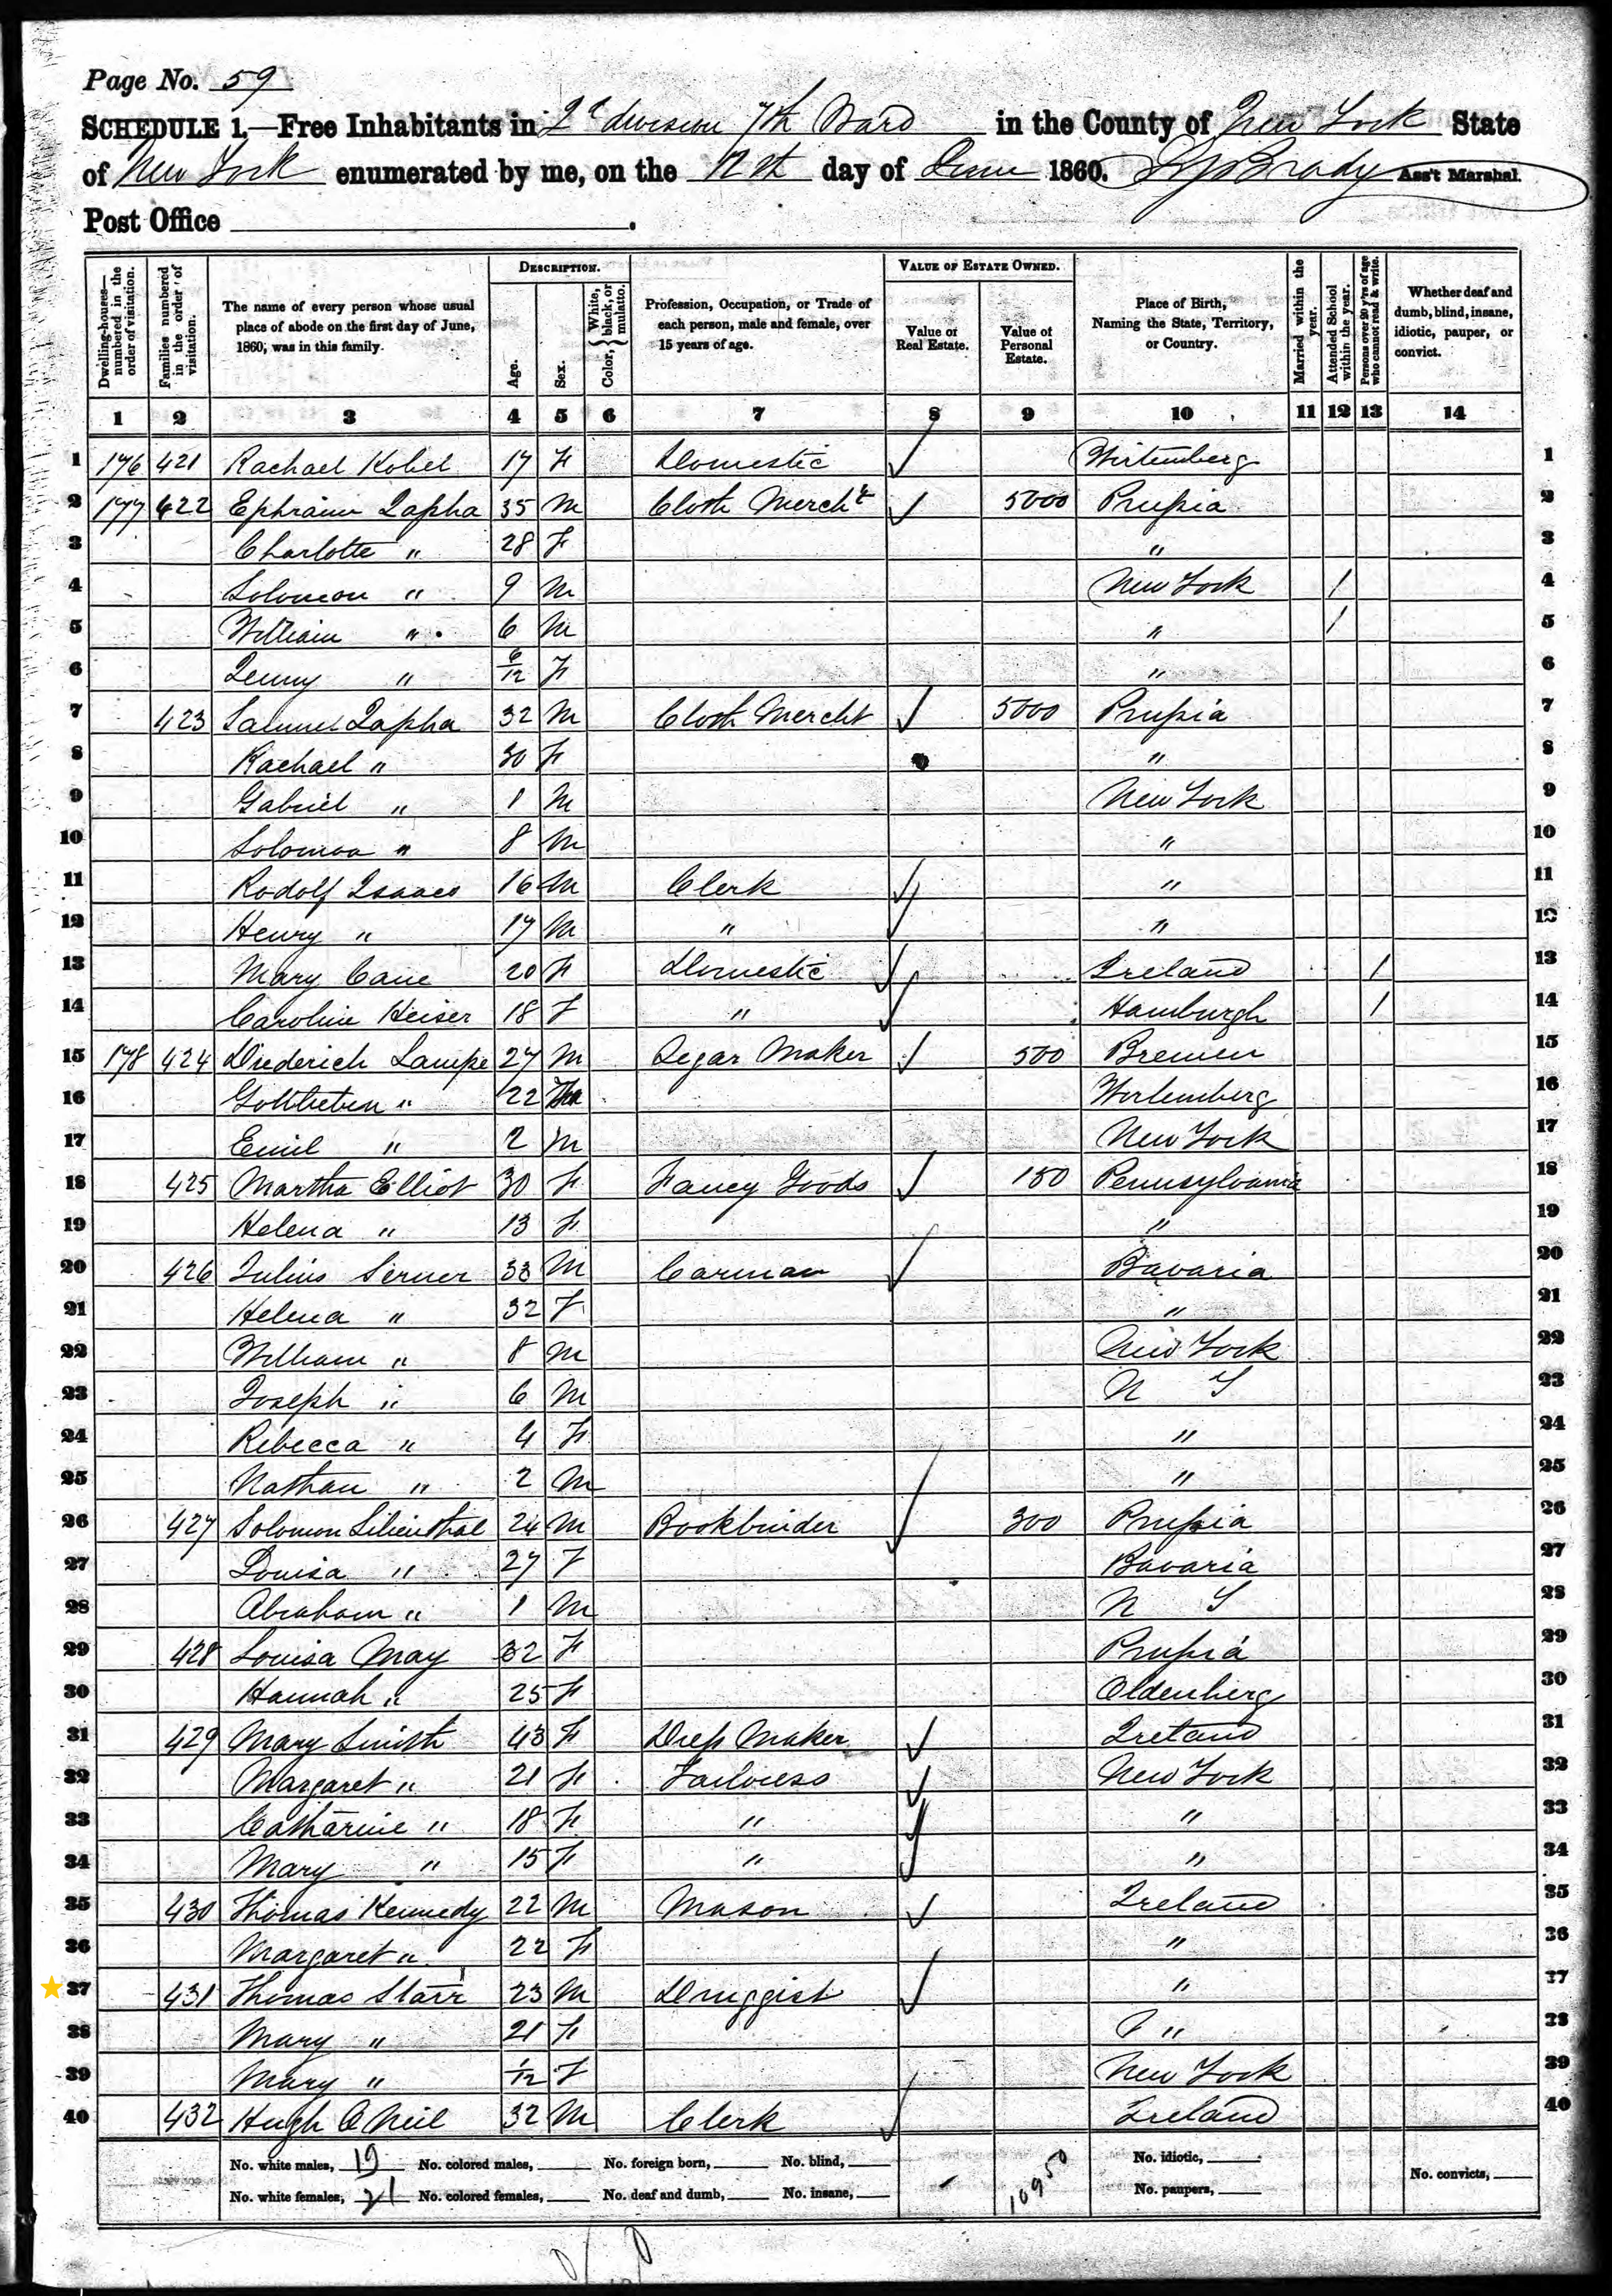 Page No. 59
SCHEDULE 1.—Free Inhabitants in 2d division 7th Ward in the County of New York State
of New York enumerated by me, on the 12th day of June 1860. Brady Ass't Marshal.
Post Office .
Dwelling-houses—numbered in the order of visitation.
Families numbered in the order of visitation.
The name of every person whose usual place of abode on the first day of June, 1860, was in this family.
DESCRIPTION.
Age.
Sex.
Color, { White, black, or mulatto.
Profession, Occupation, or Trade of each person, male and female, over 15 years of age.
VALUE OF ESTATE OWNED.
Value of Real Estate.
Value of Personal Estate.
Place of Birth, Naming the State, Territory, or Country.
Married within the year.
Attended School within the year.
Persons over 20 y'rs of age who cannot read & write.
Whether deaf and dumb, blind, insane, idiotic, pauper, or convict.
1 2 3 4 5 6 7 8 9 10 11 12 13 14
1 176 421 Rachael Kobel 17 F Domestic Wirtemberg 1
2 177 422 Ephraim Lapha 35 M Cloth Mercht 5000 Prussia 2
3 Charlotte " 28 F " 3
4 Solomon " 9 M New York / 4
5 William " 6 M " / 5
6 " 6/12 F " 6
7 423 Samuel Lapha 32 M Cloth Mercht 5000 Prussia 7
8 Rachael " 30 F " 8
9 Gabriel " 1 M New York 9
10 Solomon " 8 M " 10
11 Rodolf Isaacs 16 M Clerk " 11
12 Henry " 17 M " " 12
13 Mary Cane 20 F Domestic Ireland / 13
14 Caroline Heiser 18 F " Hamburgh / 14
15 178 424 Diederich Lampe 27 M Segar Maker 500 Bremen 15
16 " 22 Wortemberg 16
17 Emil " 2 M New York 17
18 425 Martha Elliot 30 F Fancy Goods 150 Pennsylvania 18
19 Helena " 13 F " 19
20 426 Julius Serner 33 M Carman Bavaria 20
21 Helena " 32 F " 21
22 William " 8 M New York 22
23 Joseph " 6 M N Y 23
24 Rebecca " 4 F " 24
25 Nathan " 2 M " 25
26 427 Solomon Lilienthal 24 M Bookbinder 300 Prussia 26
27 Louisa " 27 F Bavaria 27
28 Abraham " 1 M N Y 28
29 428 Louisa May 32 F Prussia 29
30 Hannah " 25 F Oldenberg 30
31 429 Mary Smith 43 F Dress Maker Ireland 31
32 Margaret " 21 F Tailoress New York 32
33 Catharine " 18 F " " 33
34 Mary " 15 F " " 34
35 430 Thomas Kennedy 22 M Mason Ireland 35
36 Margaret " 22 F " 36
37 431 Thomas Starr 23 M Druggist " 37
38 Mary " 21 F " 38
39 Mary " 1/12 F New York 39
40 432 Hugh O Neil 32 M Clerk Ireland 40
No. white males, 19 No. colored males, No. foreign born, No. blind, No. idiotic,
No. white females, 21 No. colored females, No. deaf and dumb, No. insane, 10950 No. paupers, No. convicts,